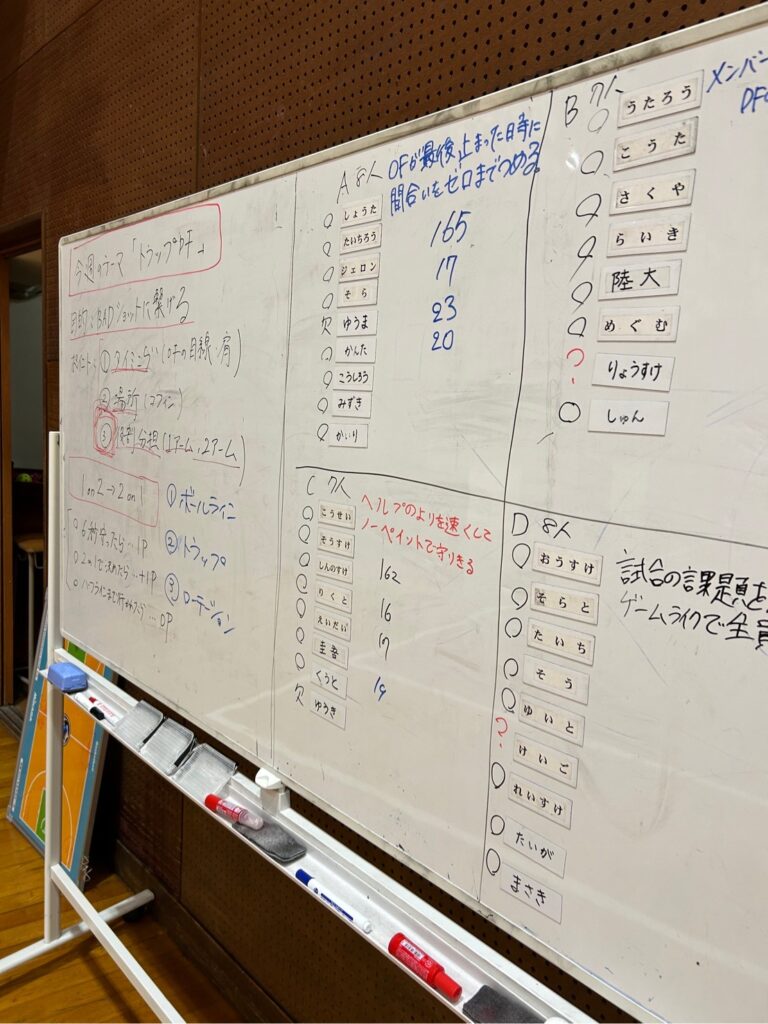 今週のテーマ「トラップDF」
目的:BADショットに繋げる
ポイント: ① タイミング (OFの目線・肩)
② 場所 (コフィン)
③ 役割分担 (1アーム、2アーム)
1 on 2 → 2 on 1
6秒守ったら…1P
2on1で決めたら…+1P
① ボールライン
② トラップ
③ ローテーション
A 8人
OFが最後止まった日時に
間合いをゼロまでつめる。
○ しょうた
○ たいちろう
○ ジェロン
○ そら
欠 ゆうま
○ かんた
○ こうしろう
○ みずき
○ かいり
165
17
23
20
B 7人
メンバー
○ うたろう
○ こうた
○ さくや
○ らいき
○ 陸大
○ めぐむ
? りょうすけ
○ しゅん
C 7人
ヘルプのよりを速くして
ノーペイントで守りきる
○ こうせい
○ そうすけ
○ しんのすけ
○ りくと
○ えいだい
○ 圭吾
○ くうと
欠 ゆうき
162
16
17
19
D 8人
試合の課題を
ゲームライクで全員
○ おうすけ
○ そらと
○ たいち
○ そう
○ ゆいと
? けいご
○ れいすけ
○ たいが
○ まさき